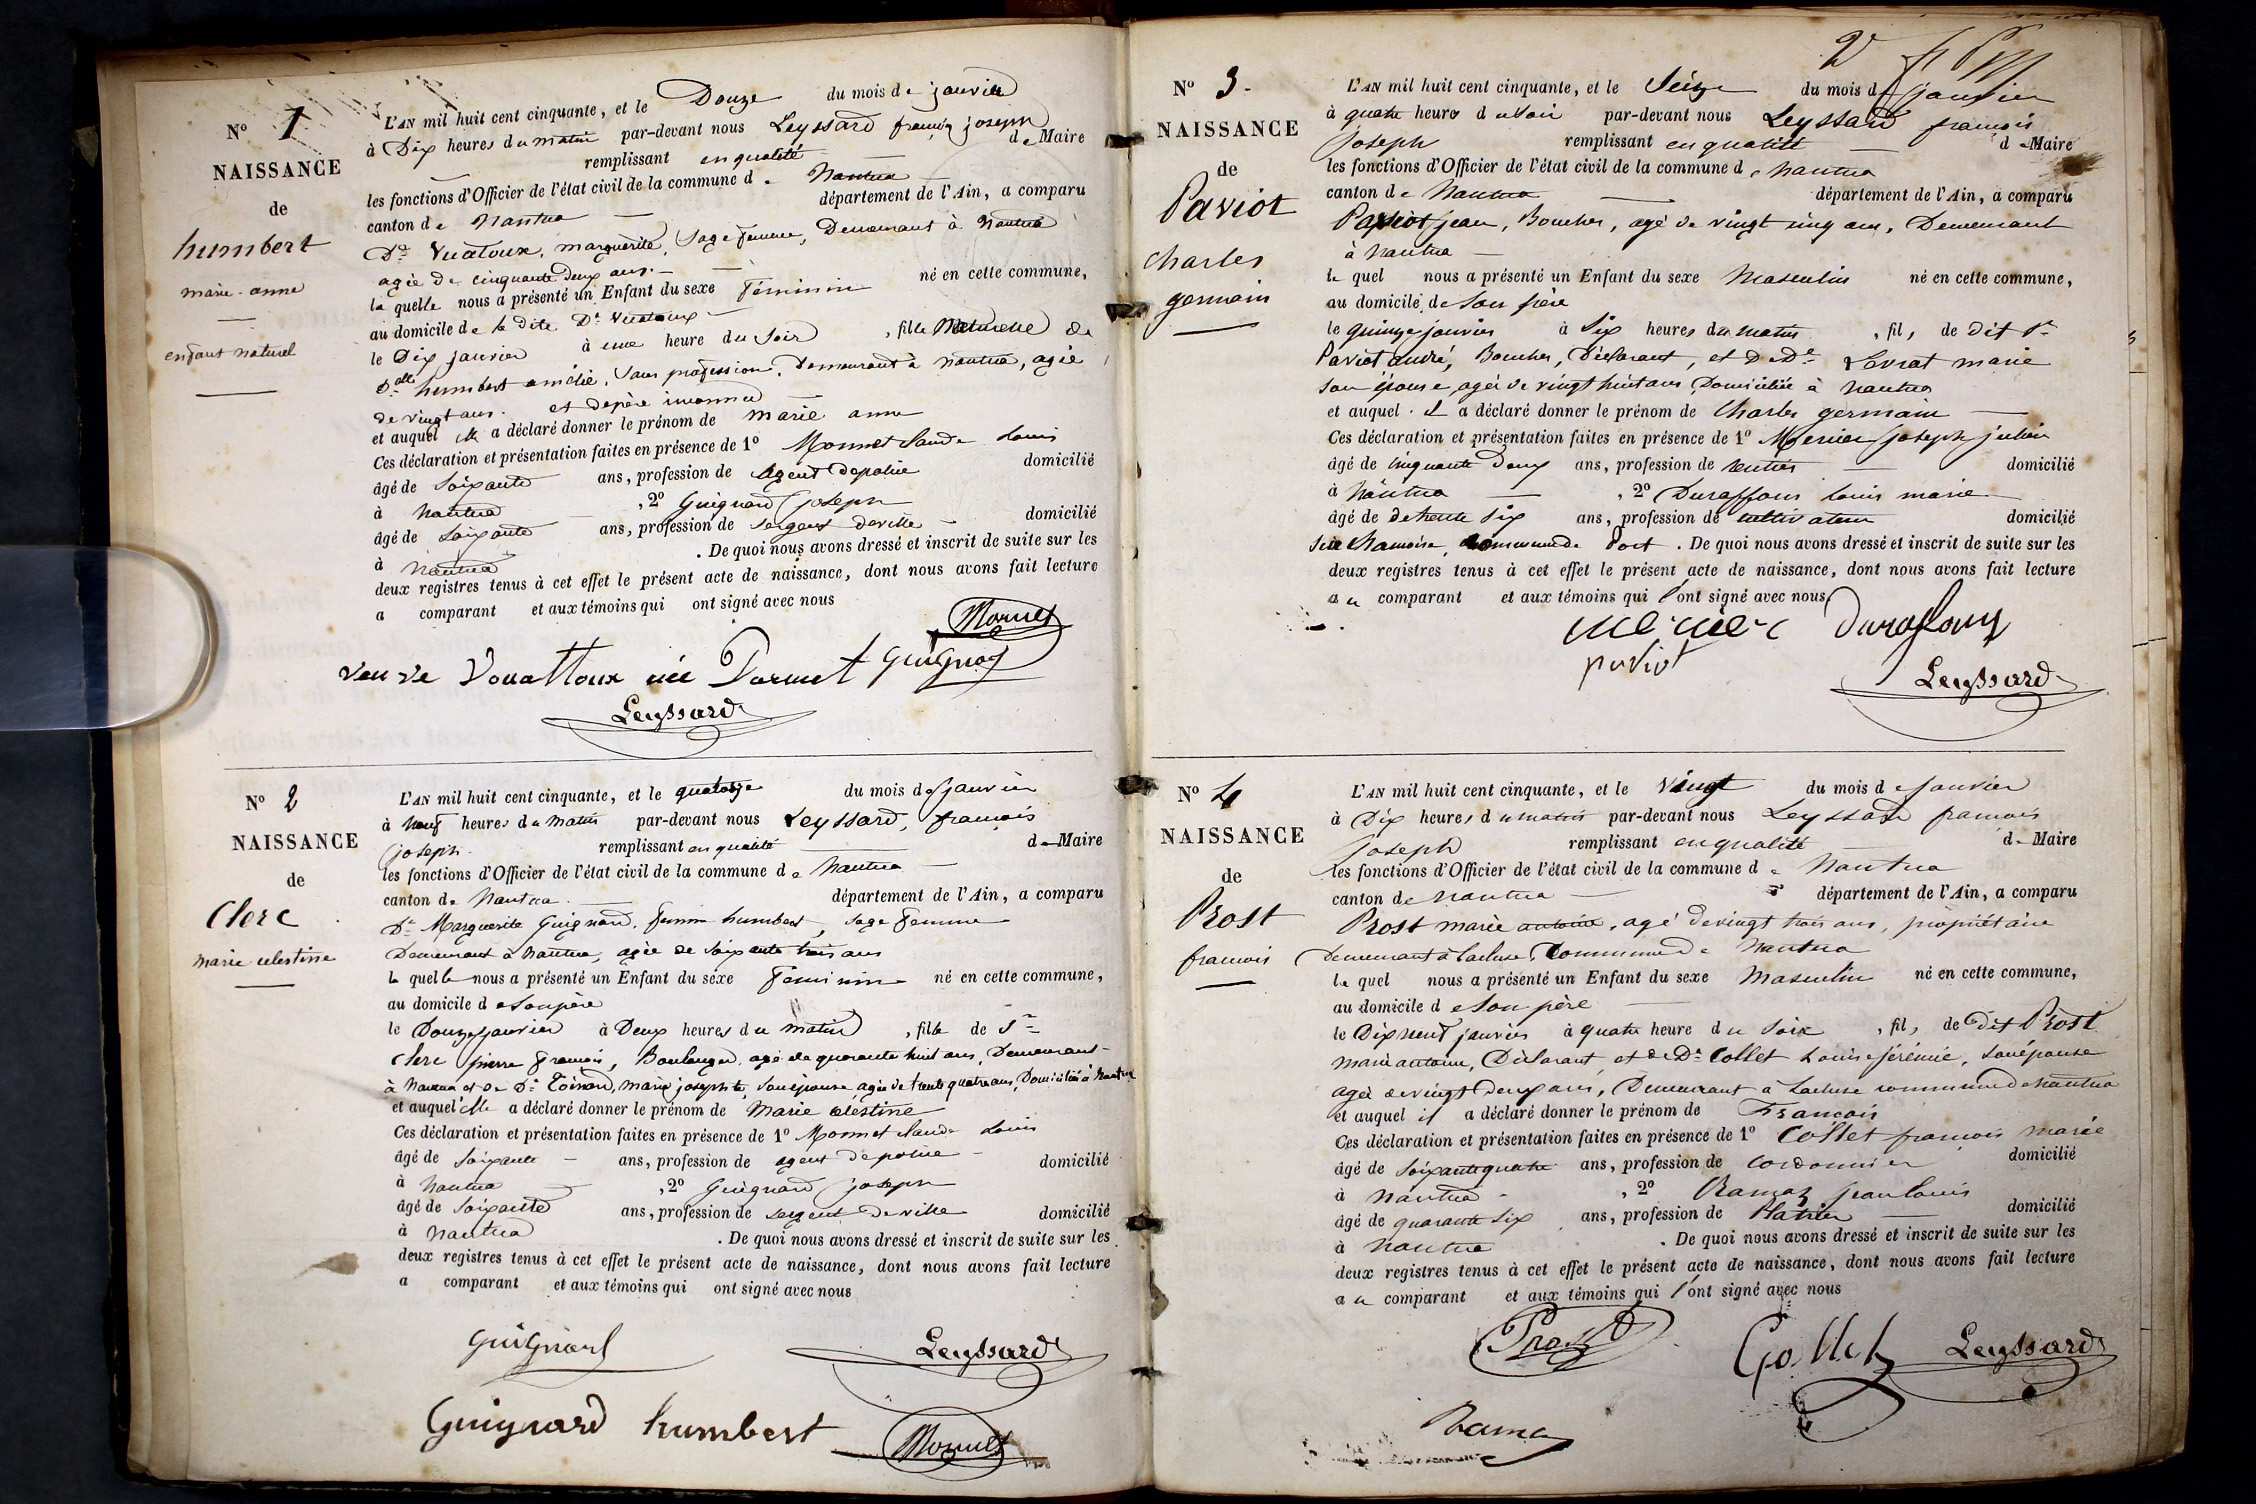 N° 1
NAISSANCE
de
humbert
marie-anne
enfant naturel
L'AN mil huit cent cinquante, et le Douze du mois de janvier
à Dix heures du matin par-devant nous Leyssard françois joseph
remplissant en qualité de Maire
les fonctions d'Officier de l'état civil de la commune de Nantua
canton de Nantua département de l'Ain, a comparu
De Vuatoux, marguerite, Sage femme, Demeurant à Nantua
agée de cinquante deux ans.
la quelle nous a présenté un Enfant du sexe féminin né en cette commune,
au domicile de la dite De Vuatoux
le Dix janvier à une heure du Soir, fille Naturelle de
Dlle humbert amélie, Sans profession, Demeurant à Nantua, agée
de vingt ans. et de père inconnu
et auquel elle a déclaré donner le prénom de marie anne
Ces déclaration et présentation faites en présence de 1° Monnet Claude Louis
âgé de Soixante ans, profession de Agent de police domicilié
à Nantua, 2° Guignard joseph
âgé de Soixante ans, profession de sergent de ville domicilié
à Nantua. De quoi nous avons dressé et inscrit de suite sur les
deux registres tenus à cet effet le présent acte de naissance, dont nous avons fait lecture
a comparant et aux témoins qui ont signé avec nous
Monnet
veuve Vouattoux née Guignard
Leyssard
N° 2
NAISSANCE
de
Clerc
marie celestine
L'AN mil huit cent cinquante, et le quatorze du mois de janvier
à Neuf heures du matin par-devant nous Leyssard, françois
joseph remplissant en qualité de Maire
les fonctions d'Officier de l'état civil de la commune de Nantua
canton de Nantua département de l'Ain, a comparu
De Marguerite Guignard, femme humbert, sage femme
Demeurant à Nantua, agée de Soixante trois ans
la quelle nous a présenté un Enfant du sexe féminin né en cette commune,
au domicile de Son père
le Douze janvier à Deux heures du matin, fille de Sr
Clerc pierre françois, Boulanger, agé de quarante huit ans, Demeurant
à Nantua et de De marie josephte, Son épouse, agée de trente quatre ans, Domiciliée à Nantua
et auquel elle a déclaré donner le prénom de Marie célestine
Ces déclaration et présentation faites en présence de 1° Monnet Claude Louis
âgé de Soixante ans, profession de agent de police domicilié
à Nantua, 2° Guignard joseph
âgé de Soixante ans, profession de sergent de ville domicilié
à Nantua. De quoi nous avons dressé et inscrit de suite sur les
deux registres tenus à cet effet le présent acte de naissance, dont nous avons fait lecture
a comparant et aux témoins qui ont signé avec nous
Guignard Leyssard
Guignard humbert Monnet
2
N° 3
NAISSANCE
de
Paviot
Charles
germain
L'AN mil huit cent cinquante, et le Seize du mois de janvier
à quatre heures du Soir par-devant nous Leyssard françois
joseph remplissant en qualité de Maire
les fonctions d'Officier de l'état civil de la commune de Nantua
canton de Nantua département de l'Ain, a comparu
Paviot jean, Boucher, agé de vingt cinq ans, Demeurant
à Nantua
le quel nous a présenté un Enfant du sexe Masculin né en cette commune,
au domicile de Son père
le quinze janvier à Six heures du matin, fils de dit Sr
Paviot andré, Boucher, Déclarant, et de De marie
son épouse, agée de vingt huit ans, Domiciliée à Nantua
et auquel il a déclaré donner le prénom de Charles germain
Ces déclaration et présentation faites en présence de 1° Mercier joseph julien
âgé de cinquante deux ans, profession de rentier domicilié
à Nantua, 2° Duraffour Louis marie
âgé de de trente Six ans, profession de cultivateur domicilié
commune de Port. De quoi nous avons dressé et inscrit de suite sur les
deux registres tenus à cet effet le présent acte de naissance, dont nous avons fait lecture
au comparant et aux témoins qui l'ont signé avec nous.
mercier Duraffour
paviot
Leyssard
N° 4
NAISSANCE
de
Prost
francois
L'AN mil huit cent cinquante, et le Vingt du mois de janvier
à Dix heures du matin par-devant nous Leyssard francois
Joseph remplissant en qualité de Maire
les fonctions d'Officier de l'état civil de la commune de Nantua
canton de Nantua département de l'Ain, a comparu
Prost marie antoine, agé de vingt trois ans, propriétaire
Demeurant à Lacluse, Commune de Nantua
le quel nous a présenté un Enfant du sexe Masculin né en cette commune,
au domicile de Son père
le Dix neuf janvier à quatre heure du Soir, fils de Dit Prost
marie antoine, Déclarant et de De Collet Louise jérémie, Son épouse
agée de vingt deux ans, Demeurant à Lacluse commune de Nantua
et auquel il a déclaré donner le prénom de François
Ces déclaration et présentation faites en présence de 1° Collet francois marie
âgé de Soixante quatre ans, profession de Cordonnier domicilié
à Nantua, 2° Ramaz jean Louis
âgé de quarante Six ans, profession de Plâtrier domicilié
à Nantua. De quoi nous avons dressé et inscrit de suite sur les
deux registres tenus à cet effet le présent acte de naissance, dont nous avons fait lecture
au comparant et aux témoins qui l'ont signé avec nous
Prost Collet Leyssard
Ramaz